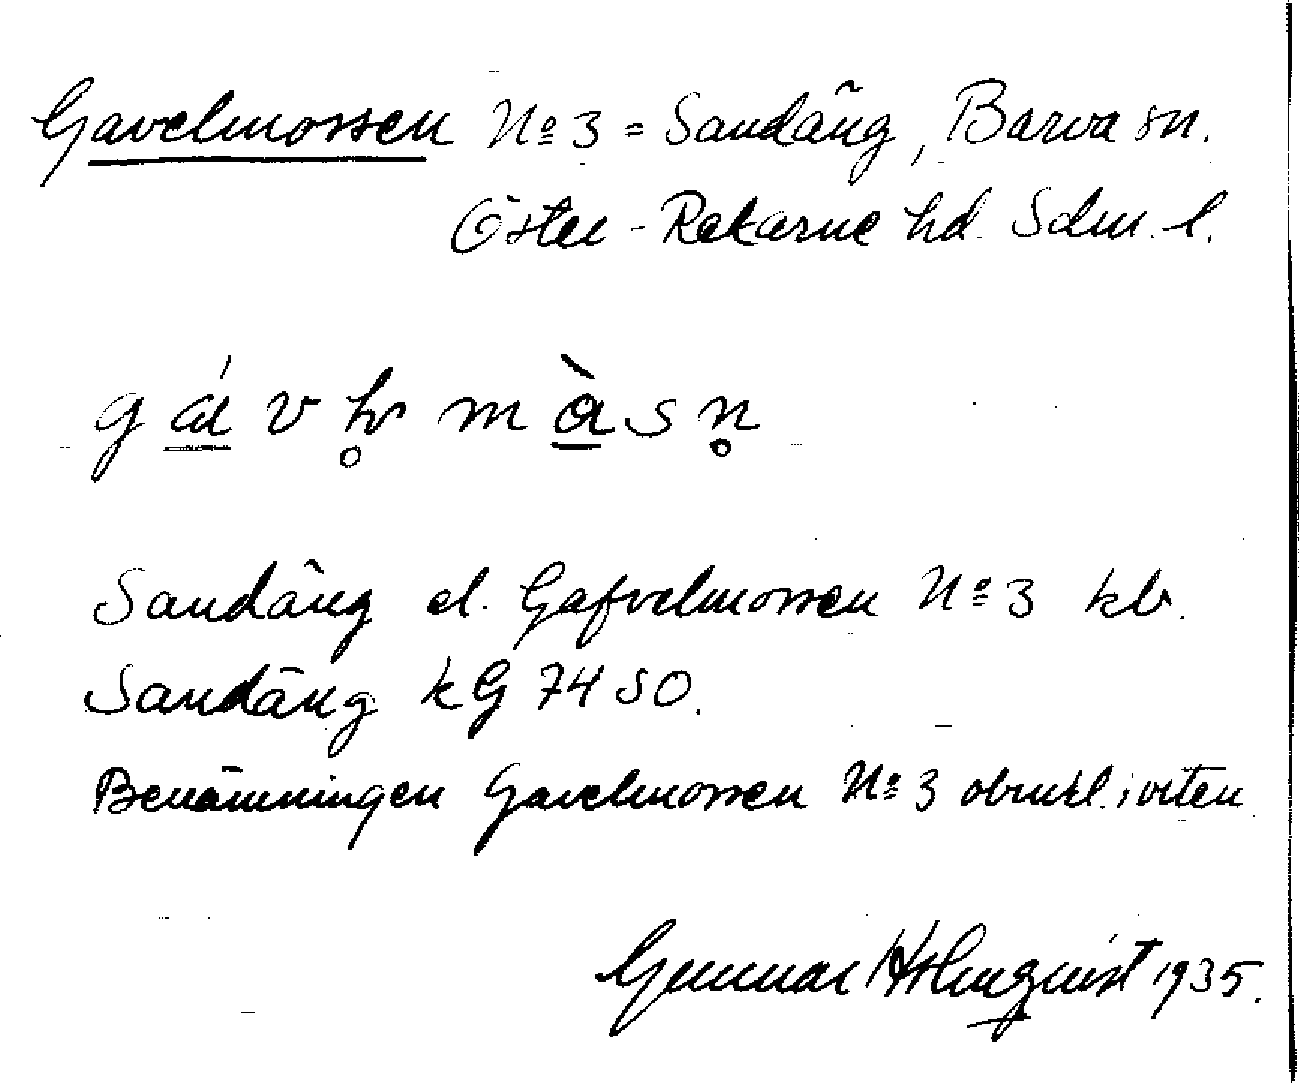 Gavelmossen No 3 = Sandäng, Barva sn.
Öster-Rekarne hd. Sdm. l.
Sandäng el. Gafvelmossen No 3 kb.
Sandäng kG 74 SO.
Benämningen Gavelmossen No 3 obrukl. i orten
Gunnar Holmquist 1935.